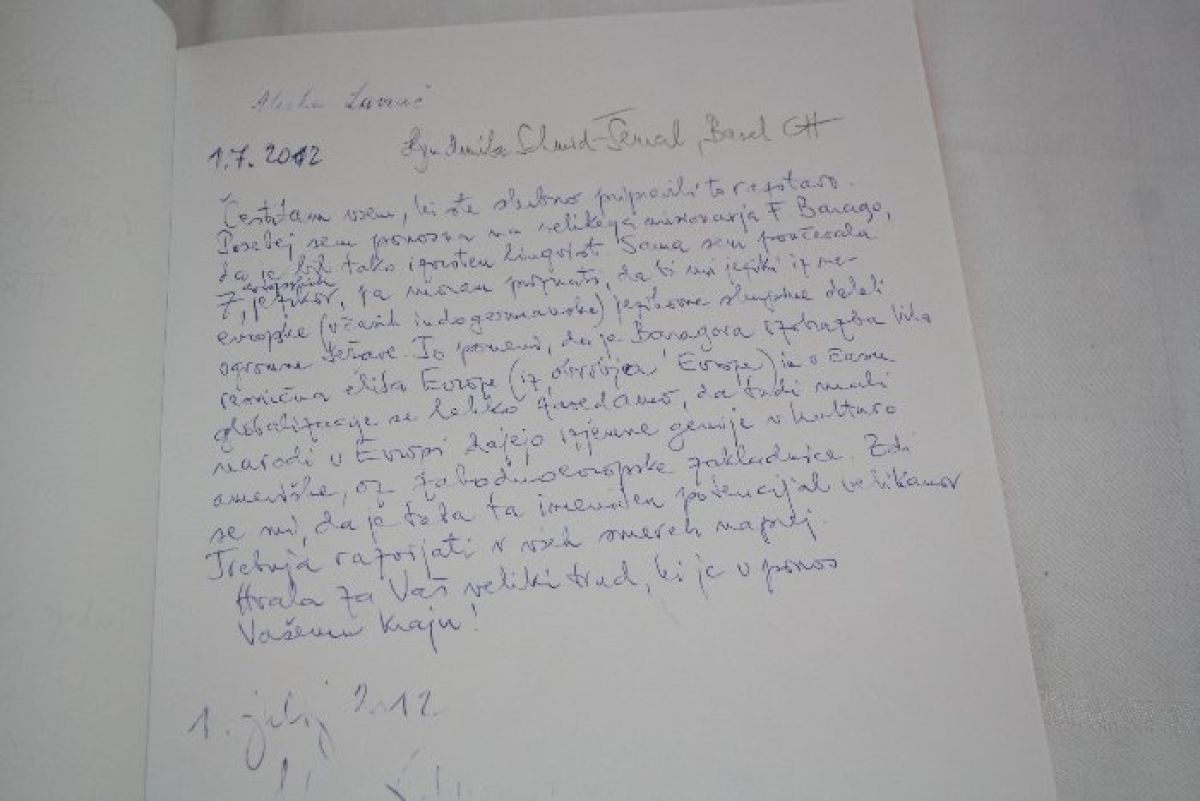 1.7. 2012
Ljudmila Schmid-Šemrl, Basel CH
Čestitam vsem, ki ste skrbno pripravili to razstavo.
Posebej sem ponosna na velikega misionarja F Barago,
da je bil tako izvrsten lingvist. Sama sem poučevala
7 evropskih jezikov, pa moram priznati, da bi mi jeziki iz ne-
evropske (včasih indogermanske) jezikovne skupine delali
ogromne težave. To pomeni, da je Baragova izobrazba bila
resnična elita Evrope (iz "obrobja" Evrope) in v času
globalizacije se lahko zavedamo, da tudi mali
narodi v Evropi dajejo izjemne genije v kulturo
ameriške, oz zahodnoevropske zakladnice. Zdi
se mi, da je treba ta imeniten potencijal velikanov
Trebnja razvijati v vseh smereh naprej.
Hvala za Vaš veliki trud, ki je v ponos
Vašemu kraju!
1. julij 2012